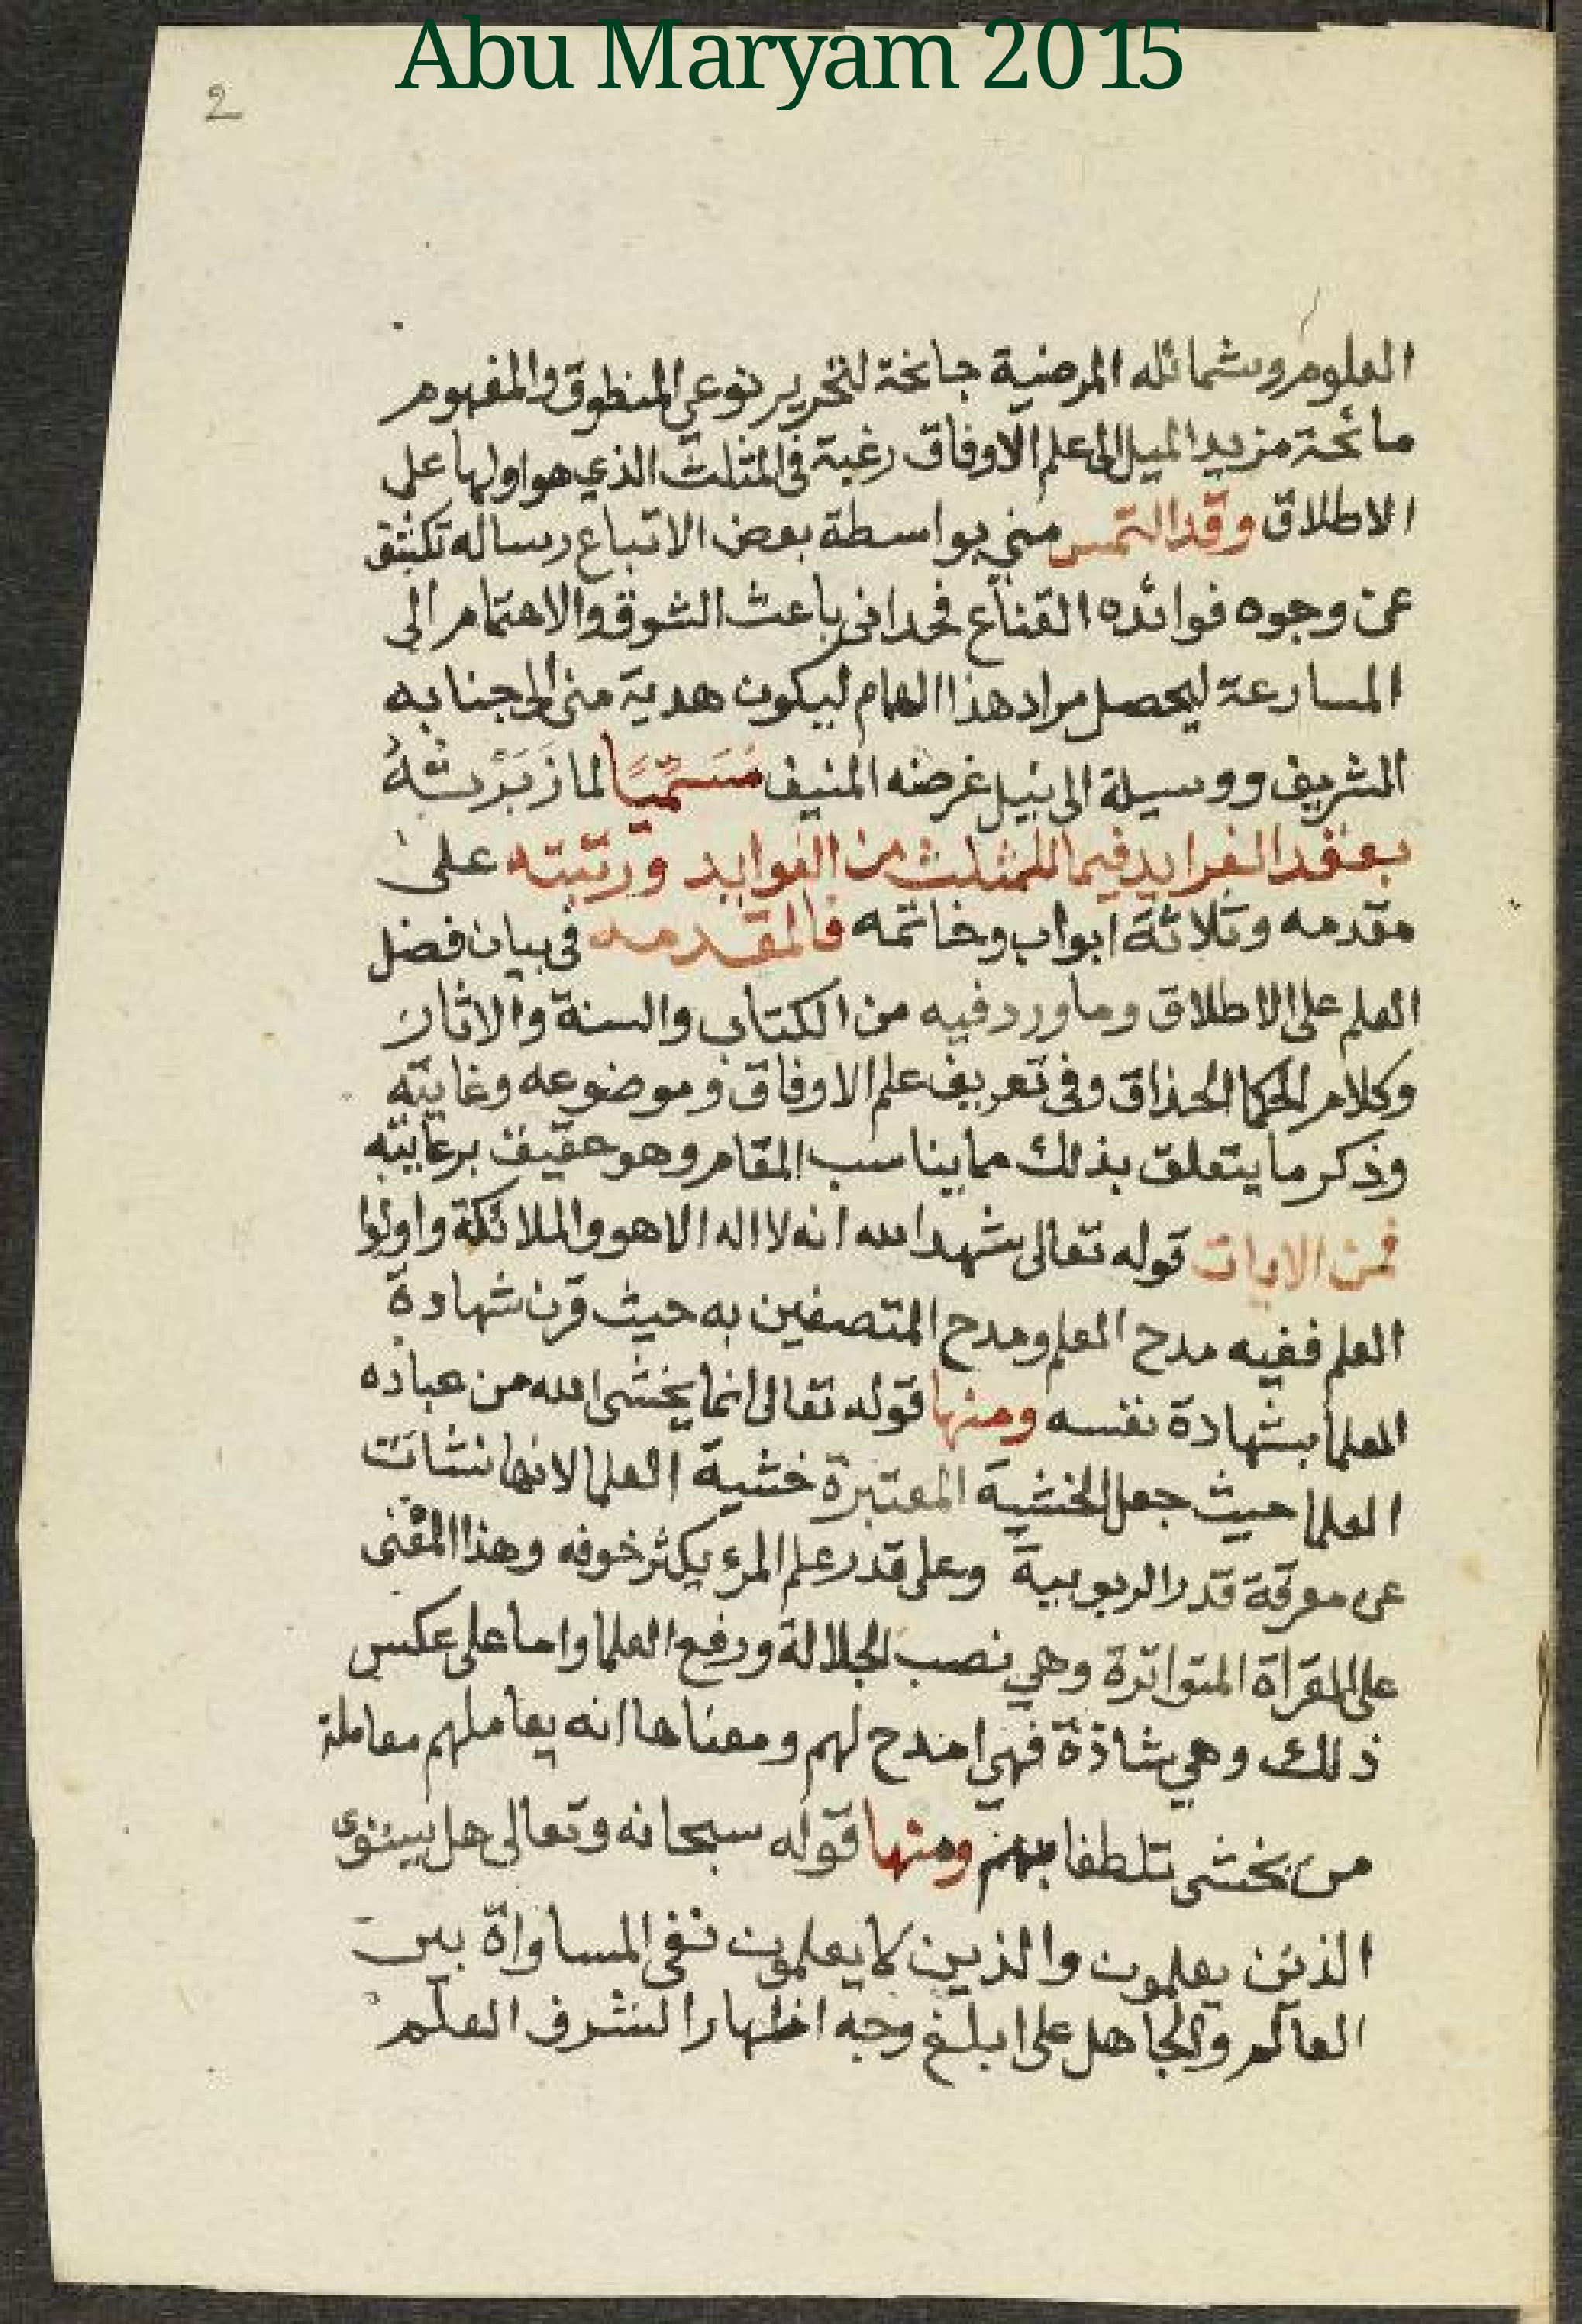 Abu Maryam 2015
2
العلوم وشمائله المرضية جانحة لتحرير نوعي المنطوق والمفهوم
مائحة مزيد الميل الى علم الاوفاق رغبة في المثلث الذي هو اولها على
الاطلاق وقد التمس مني بواسطة بعض الاتباع رسالة تكشف
عن وجوه فوائده القناع فحداني باعث الشوق والاهتمام الى
المسارعة ليحصل مراد هذا الهمام ليكون هدية مني الى جنابه
الشريف ووسيلة الى نيل غرضه المنيف مُسَمِّيًا لما زَبَرْتُهُ
بعقد الفرايد فيما للمثلث من الفوايد ورتبته على
مقدمه وثلاثة ابواب وخاتمه فالمقدمه في بيان فضل
العلم على الاطلاق وما ورد فيه من الكتاب والسنة والاثار
وكلام الحكما الحذاق وفي تعريف علم الاوفاق وموضوعه وغايته
وذكر ما يتعلق بذلك مما يناسب المقام وهو حقيق برعايته
فمن الايات قوله تعالى شهد الله انه لا اله الا هو والملائكة واولوا
العلم ففيه مدح العلم ومدح المتصفين به حيث قرن شهادة
العلما بشهادة نفسه ومنها قوله تعالى انما يخشى الله من عباده
العلما حيث جعل الخشية المعتبرة خشية العلما لانها نشات
عن معرفة قدر الربوبية وعلى قدر علم المرء يكثر خوفه وهذا المعنى
على القراة المتواترة وهي نصب الجلالة ورفع العلما واما على عكس
ذلك وهي شاذة فهي امدح لهم ومعناها انه يعاملهم معاملة
من يخشى تلطفا بهم ومنها قوله سبحانه وتعالى هل يستوى
الذين يعلمون والذين لا يعلمون نفى المساواة بين
العالم والجاهل على ابلغ وجه اظهارا لشرف العلم